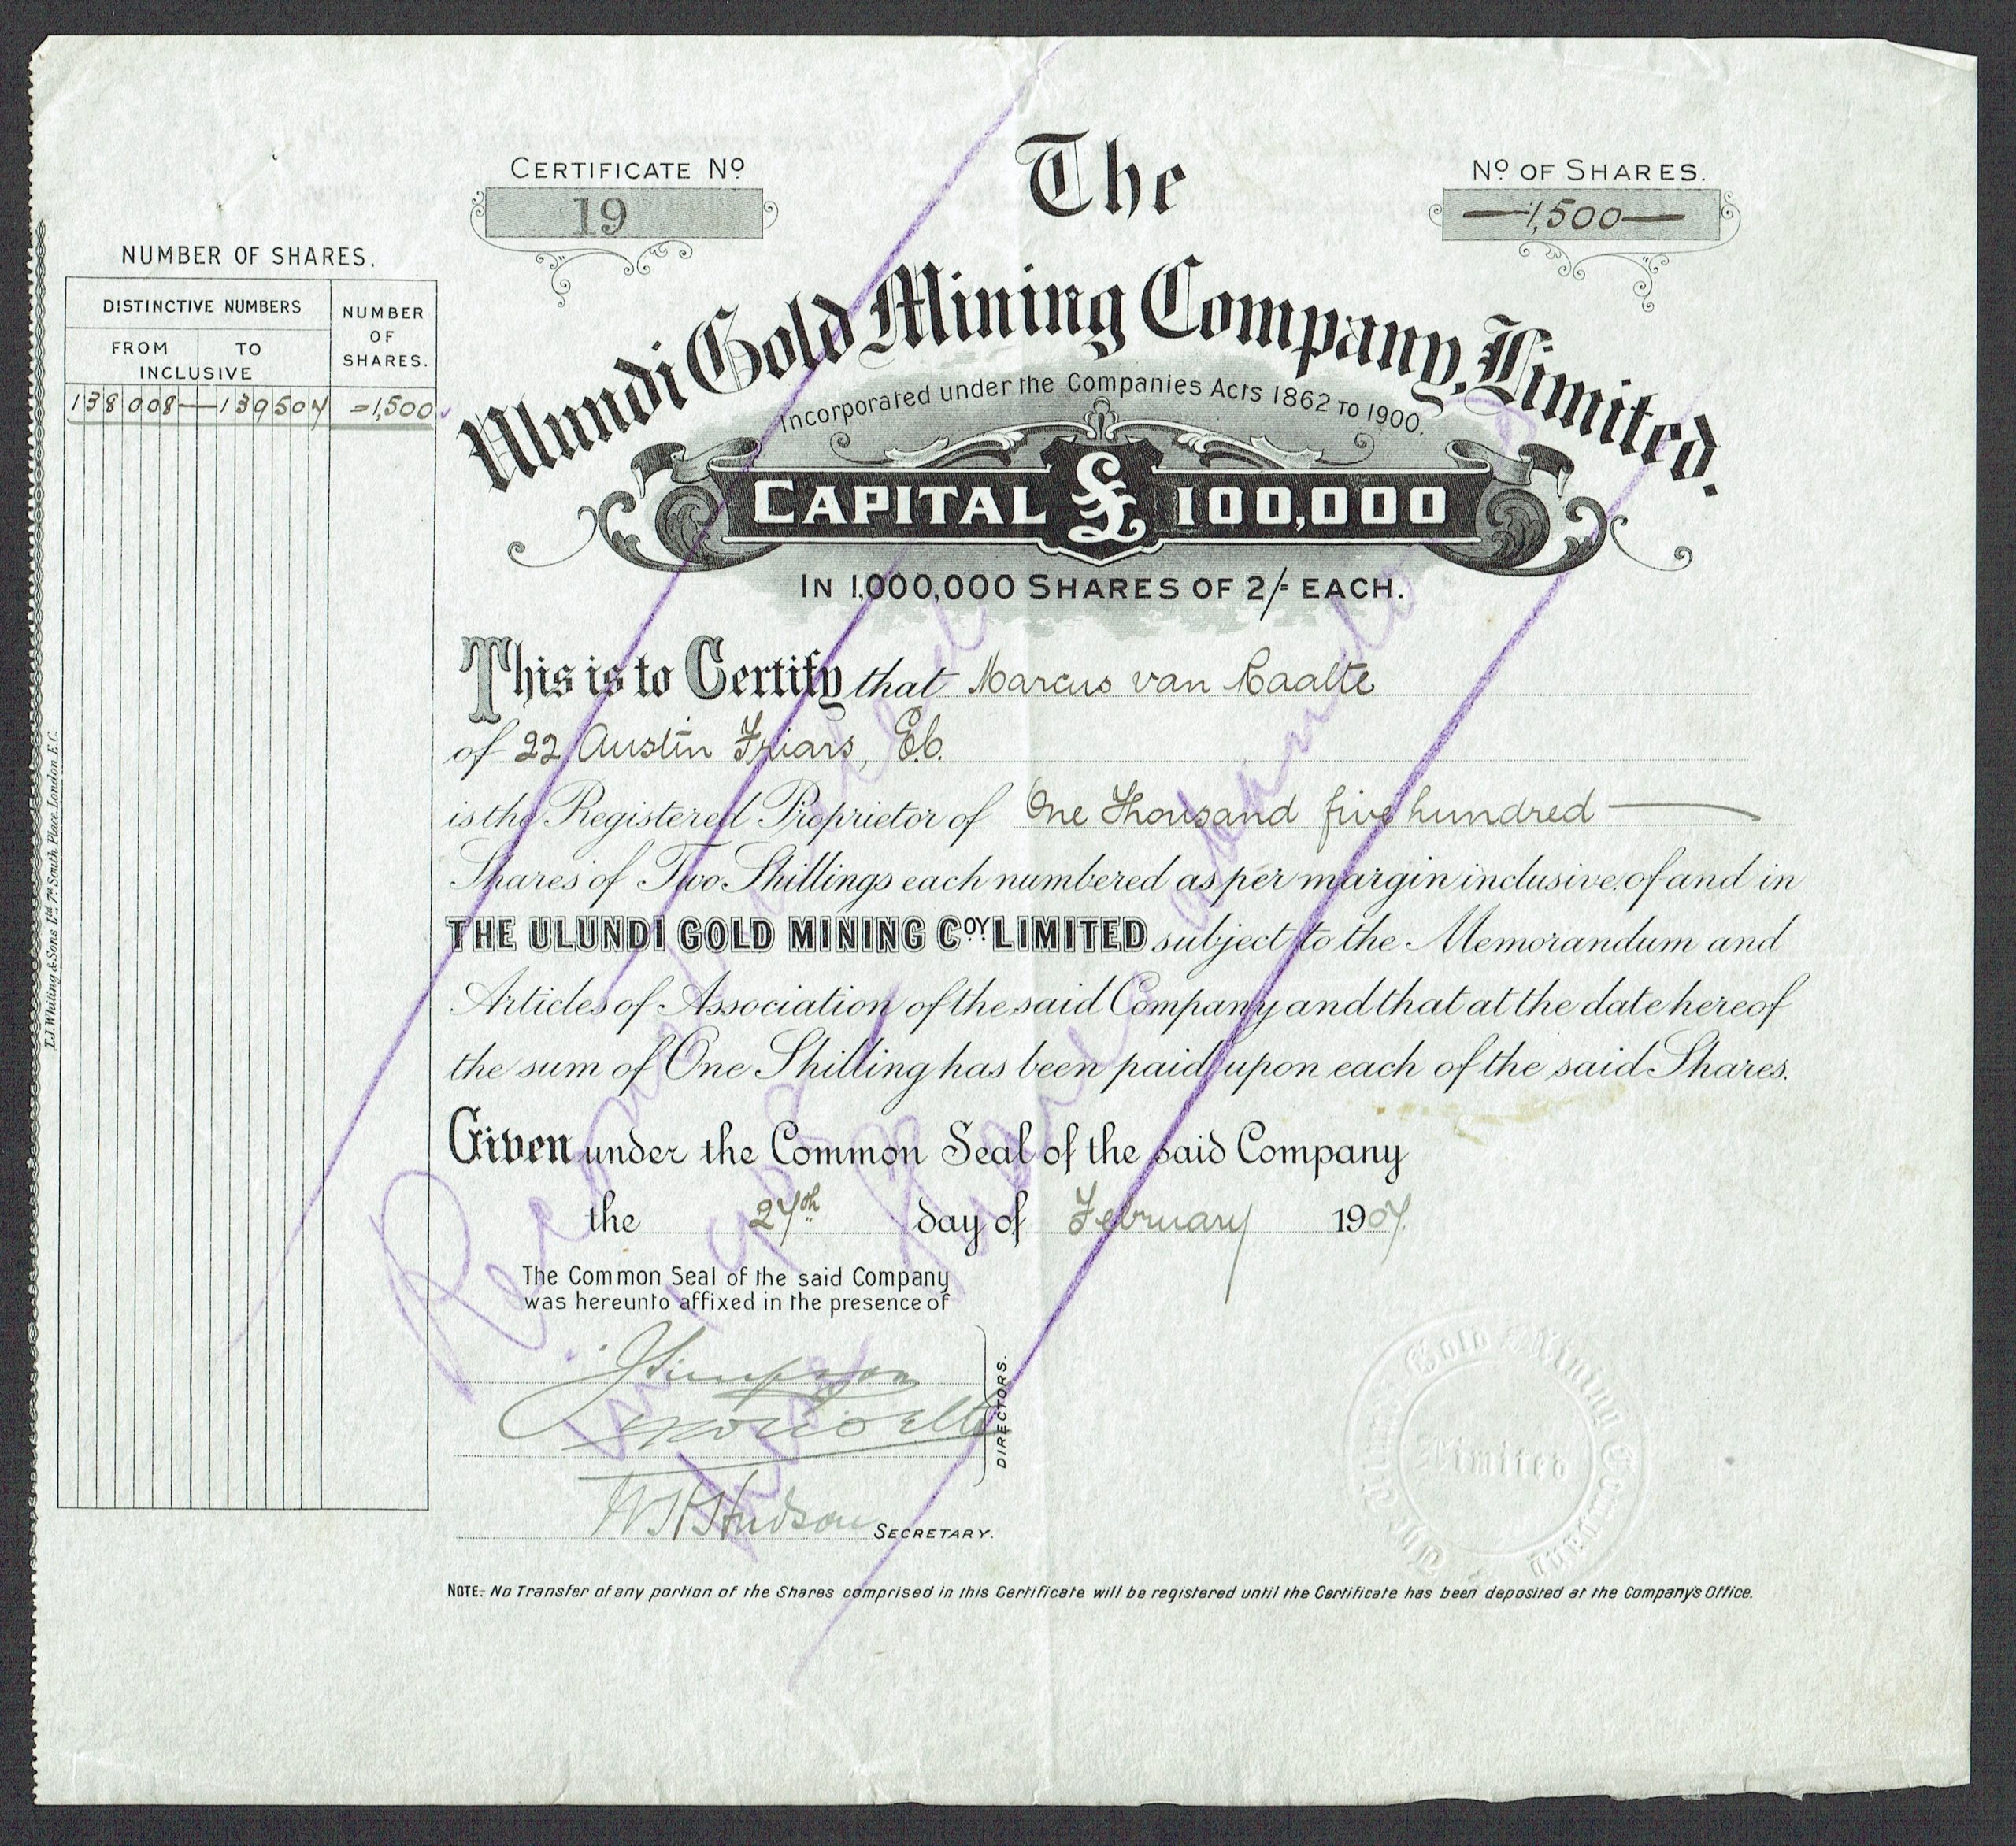 CERTIFICATE Nº
19
The
Nº OF SHARES.
1,500
Ulundi Gold Mining Company, Limited.
Incorporated under the Companies Acts 1862 to 1900.
CAPITAL £ 100,000
IN 1,000,000 SHARES OF 2/- EACH.
NUMBER OF SHARES.
DISTINCTIVE NUMBERS
NUMBER OF SHARES.
FROM TO
INCLUSIVE
138008—139507 =1,500
This is to Certify that Marcus van Raalte
of 22 Austin Friars, E.C.
is the Registered Proprietor of One Thousand five hundred
Shares of Two Shillings each numbered as per margin inclusive, of and in
THE ULUNDI GOLD MINING COY. LIMITED subject to the Memorandum and
Articles of Association of the said Company and that at the date hereof
the sum of One Shilling has been paid upon each of the said Shares.
Given under the Common Seal of the said Company
the 27th day of February 1907.
The Common Seal of the said Company
was hereunto affixed in the presence of
J Simpson
DIRECTORS.
Hudson SECRETARY.
The Ulundi Gold Mining Company
Limited
NOTE:- No Transfer of any portion of the Shares comprised in this Certificate will be registered until the Certificate has been deposited at the Company's Office.
T.J. Whiting & Sons Ltd. 7a South Place, London, E.C.